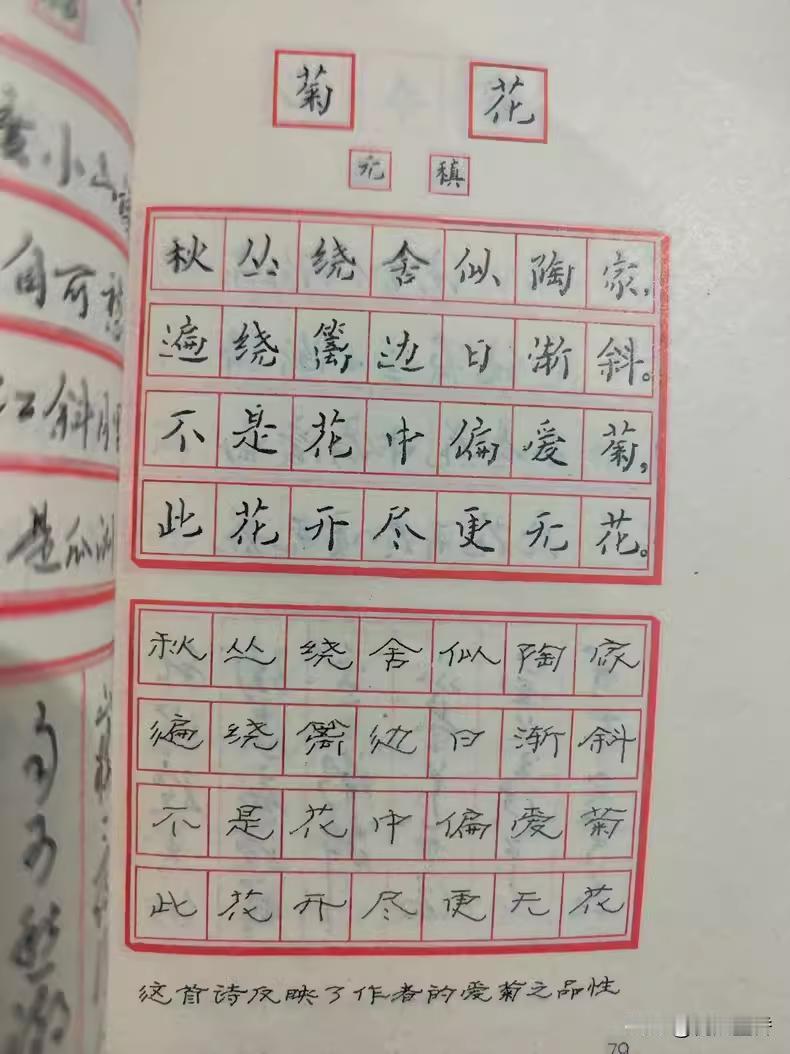 小山
自可
斜
是
菊花
元稹
秋丛绕舍似陶家,
遍绕篱边日渐斜。
不是花中偏爱菊,
此花开尽更无花。
秋丛绕舍似陶家
遍绕篱边日渐斜
不是花中偏爱菊
此花开尽更无花
这首诗反映了作者的爱菊之品性
79